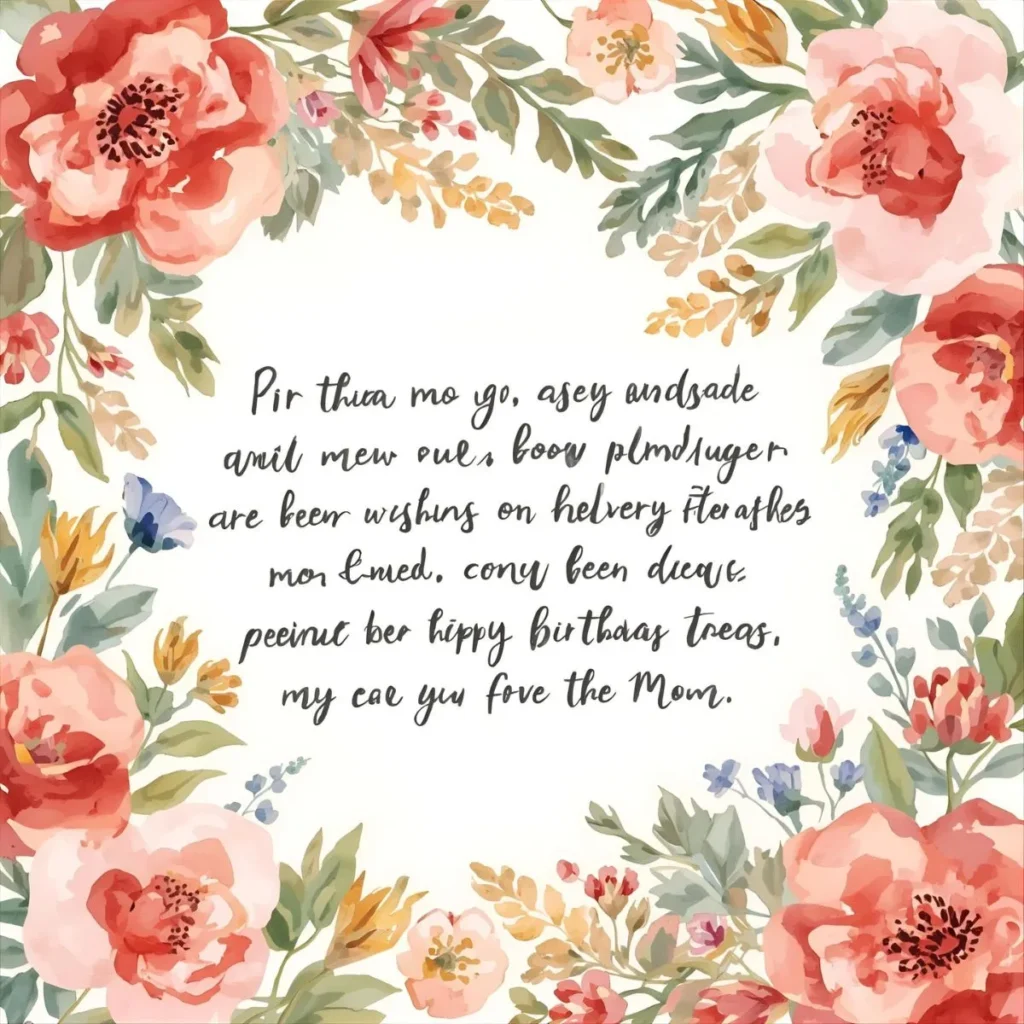 Pir thua mo yo, asey andsade
anil mew oul, boow plmdluger
are beer wishins on helvery
mon &med. cony been
peeinut ber hippy Birthday Treas,
my cae you fove the Mom.